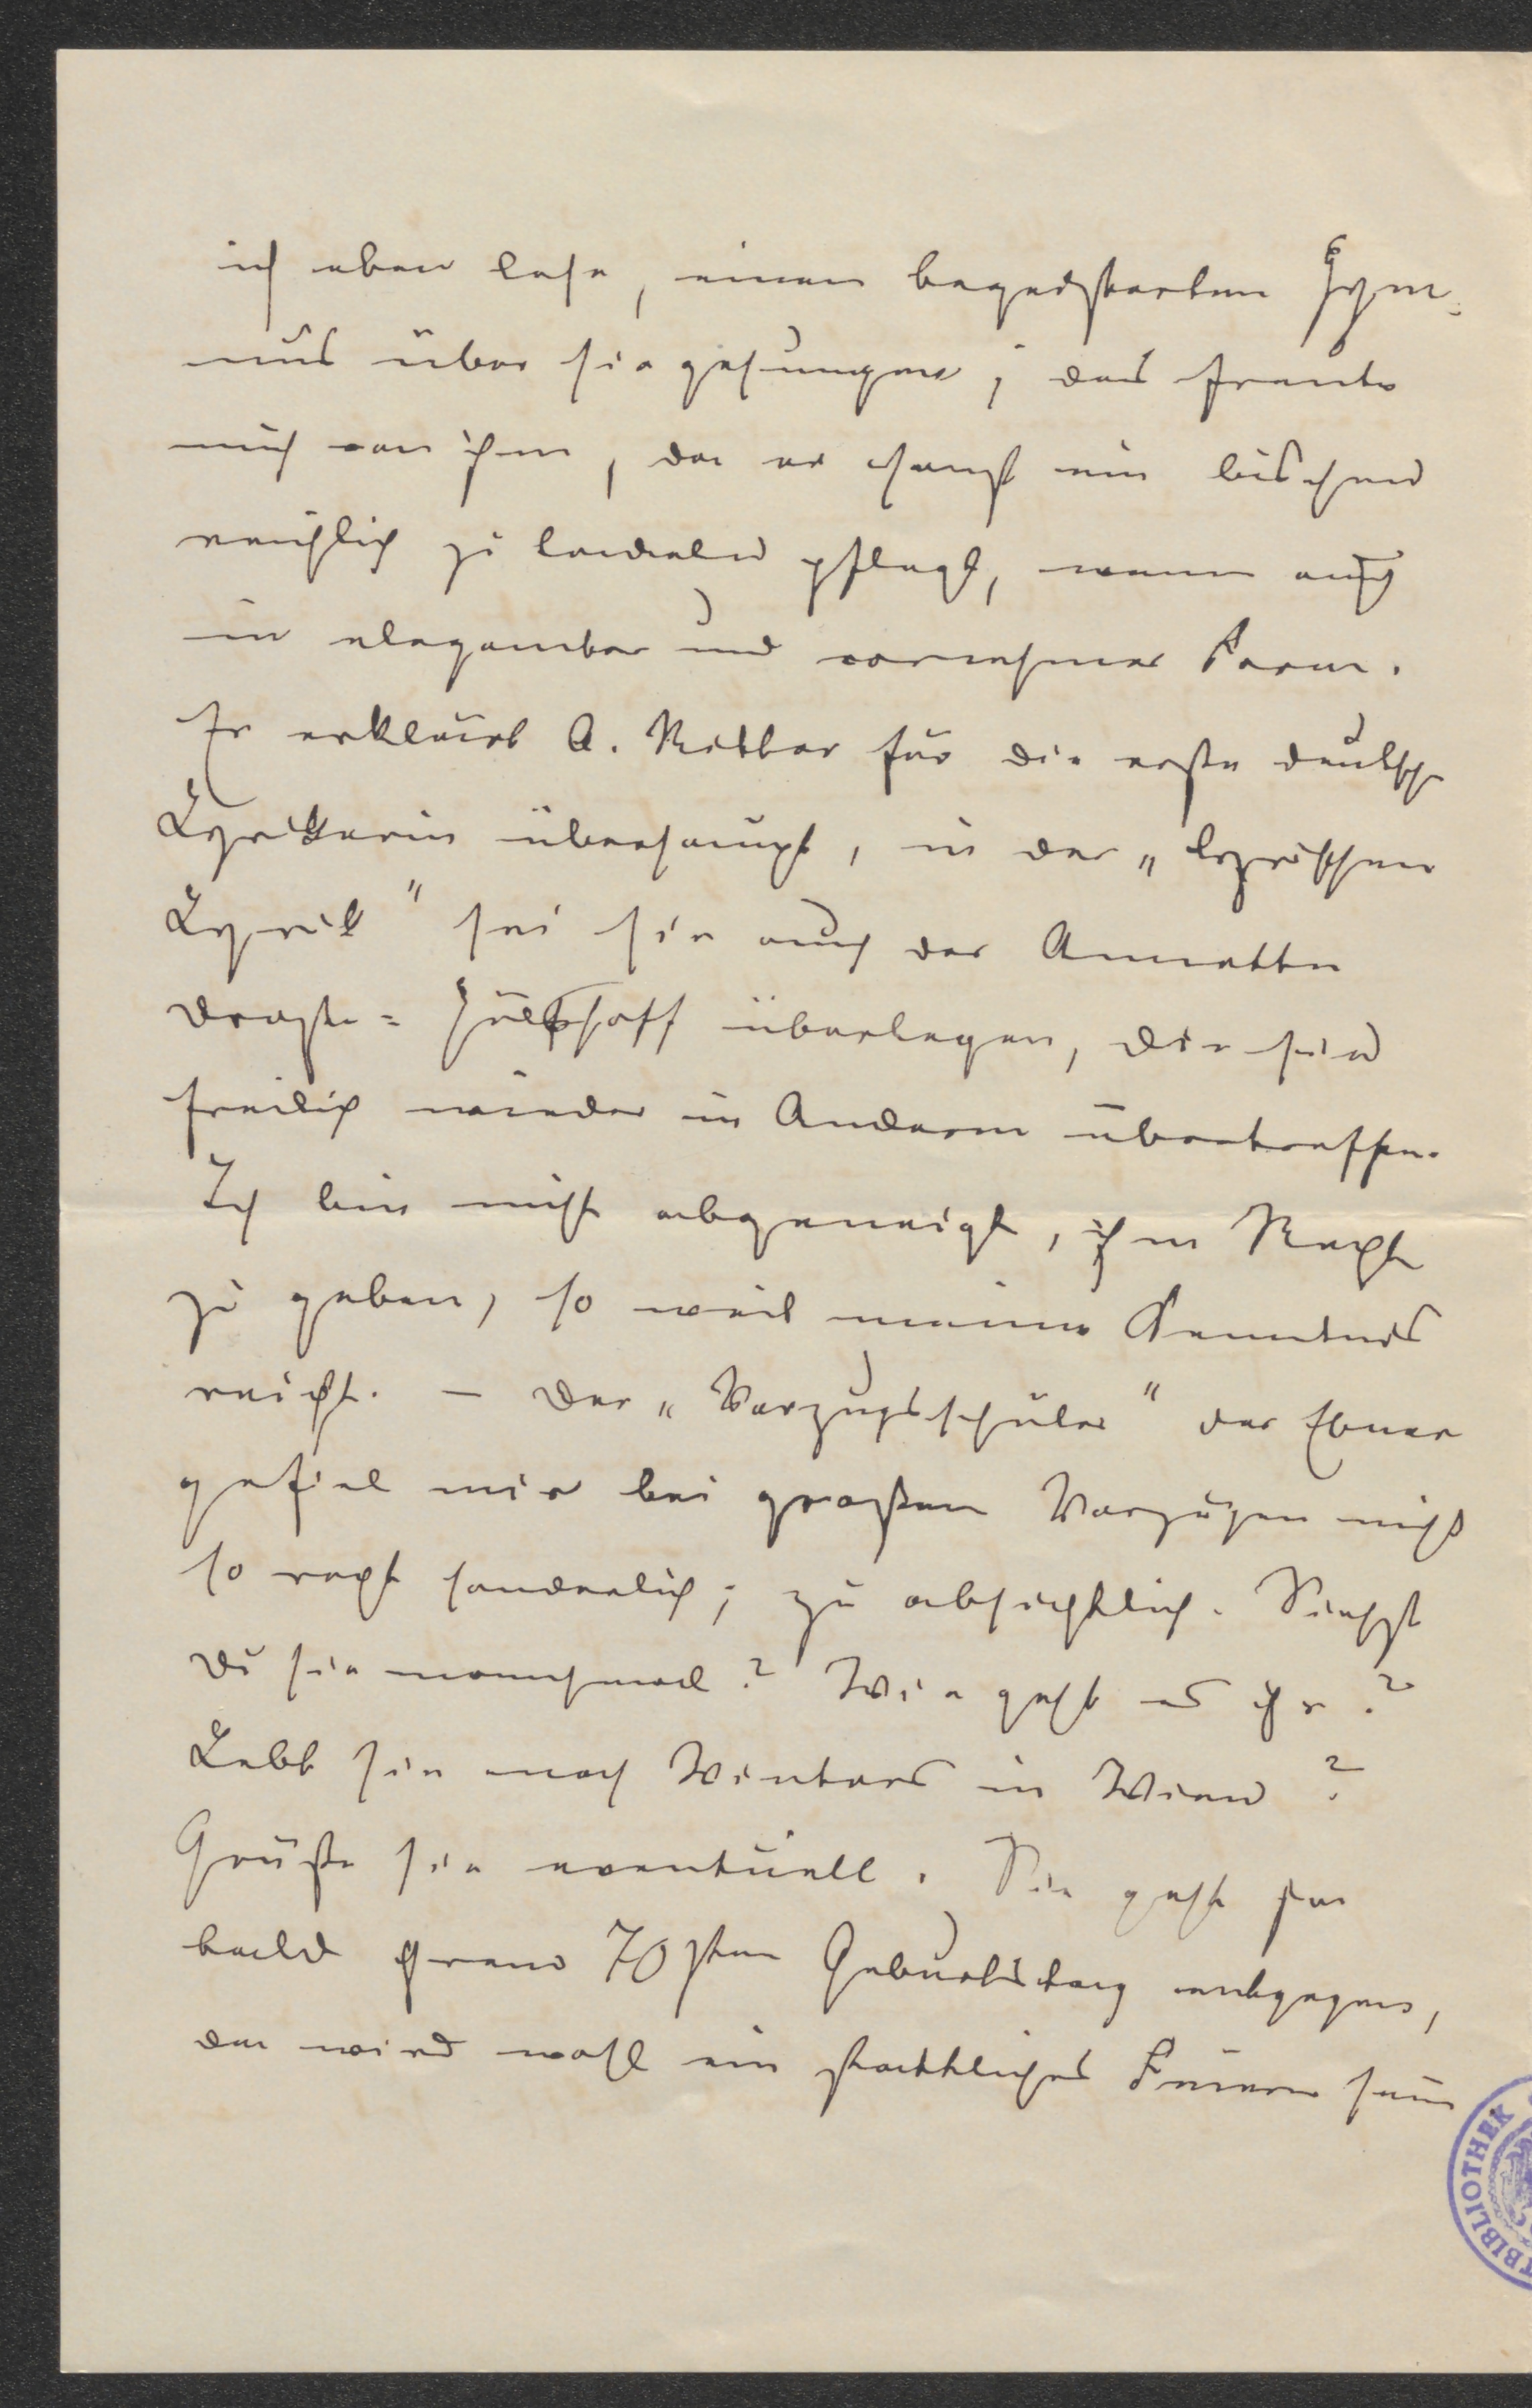 ich eben lese, einen begeisterten Hym-
nus über sie gesungen; das freute
mich von ihm, da er sonst ein bischen
reichlich zu tadeln pflegt, wenn auch
in eleganter und vornehmer Form.
Er erklärt A. Ritter für die erste deutsche
Lyrikerin überhaupt, in der „lyrischen
Lyrik" sei sie auch der Annette
Droste-Hülshoff überlegen, die sie
freilich wieder in Anderm übertreffe.
Ich bin nicht abgeneigt, ihm Recht
zu geben, so weit meine Kenntnis
reicht. – Der „Vorzugsschüler" der Ebner
gefiel mir bei großen Vorzügen nicht
so recht sonderlich; zu absichtlich. Siehst
du sie manchmal? Wie geht es ihr?
Lebt sie noch Winters in Wien?
Grüße sie eventuell. Sie geht ja
bald ihrem 70sten Geburtstag entgegen,
da wird wohl ein stattliches Feiern sein
BIBLIOTHEK